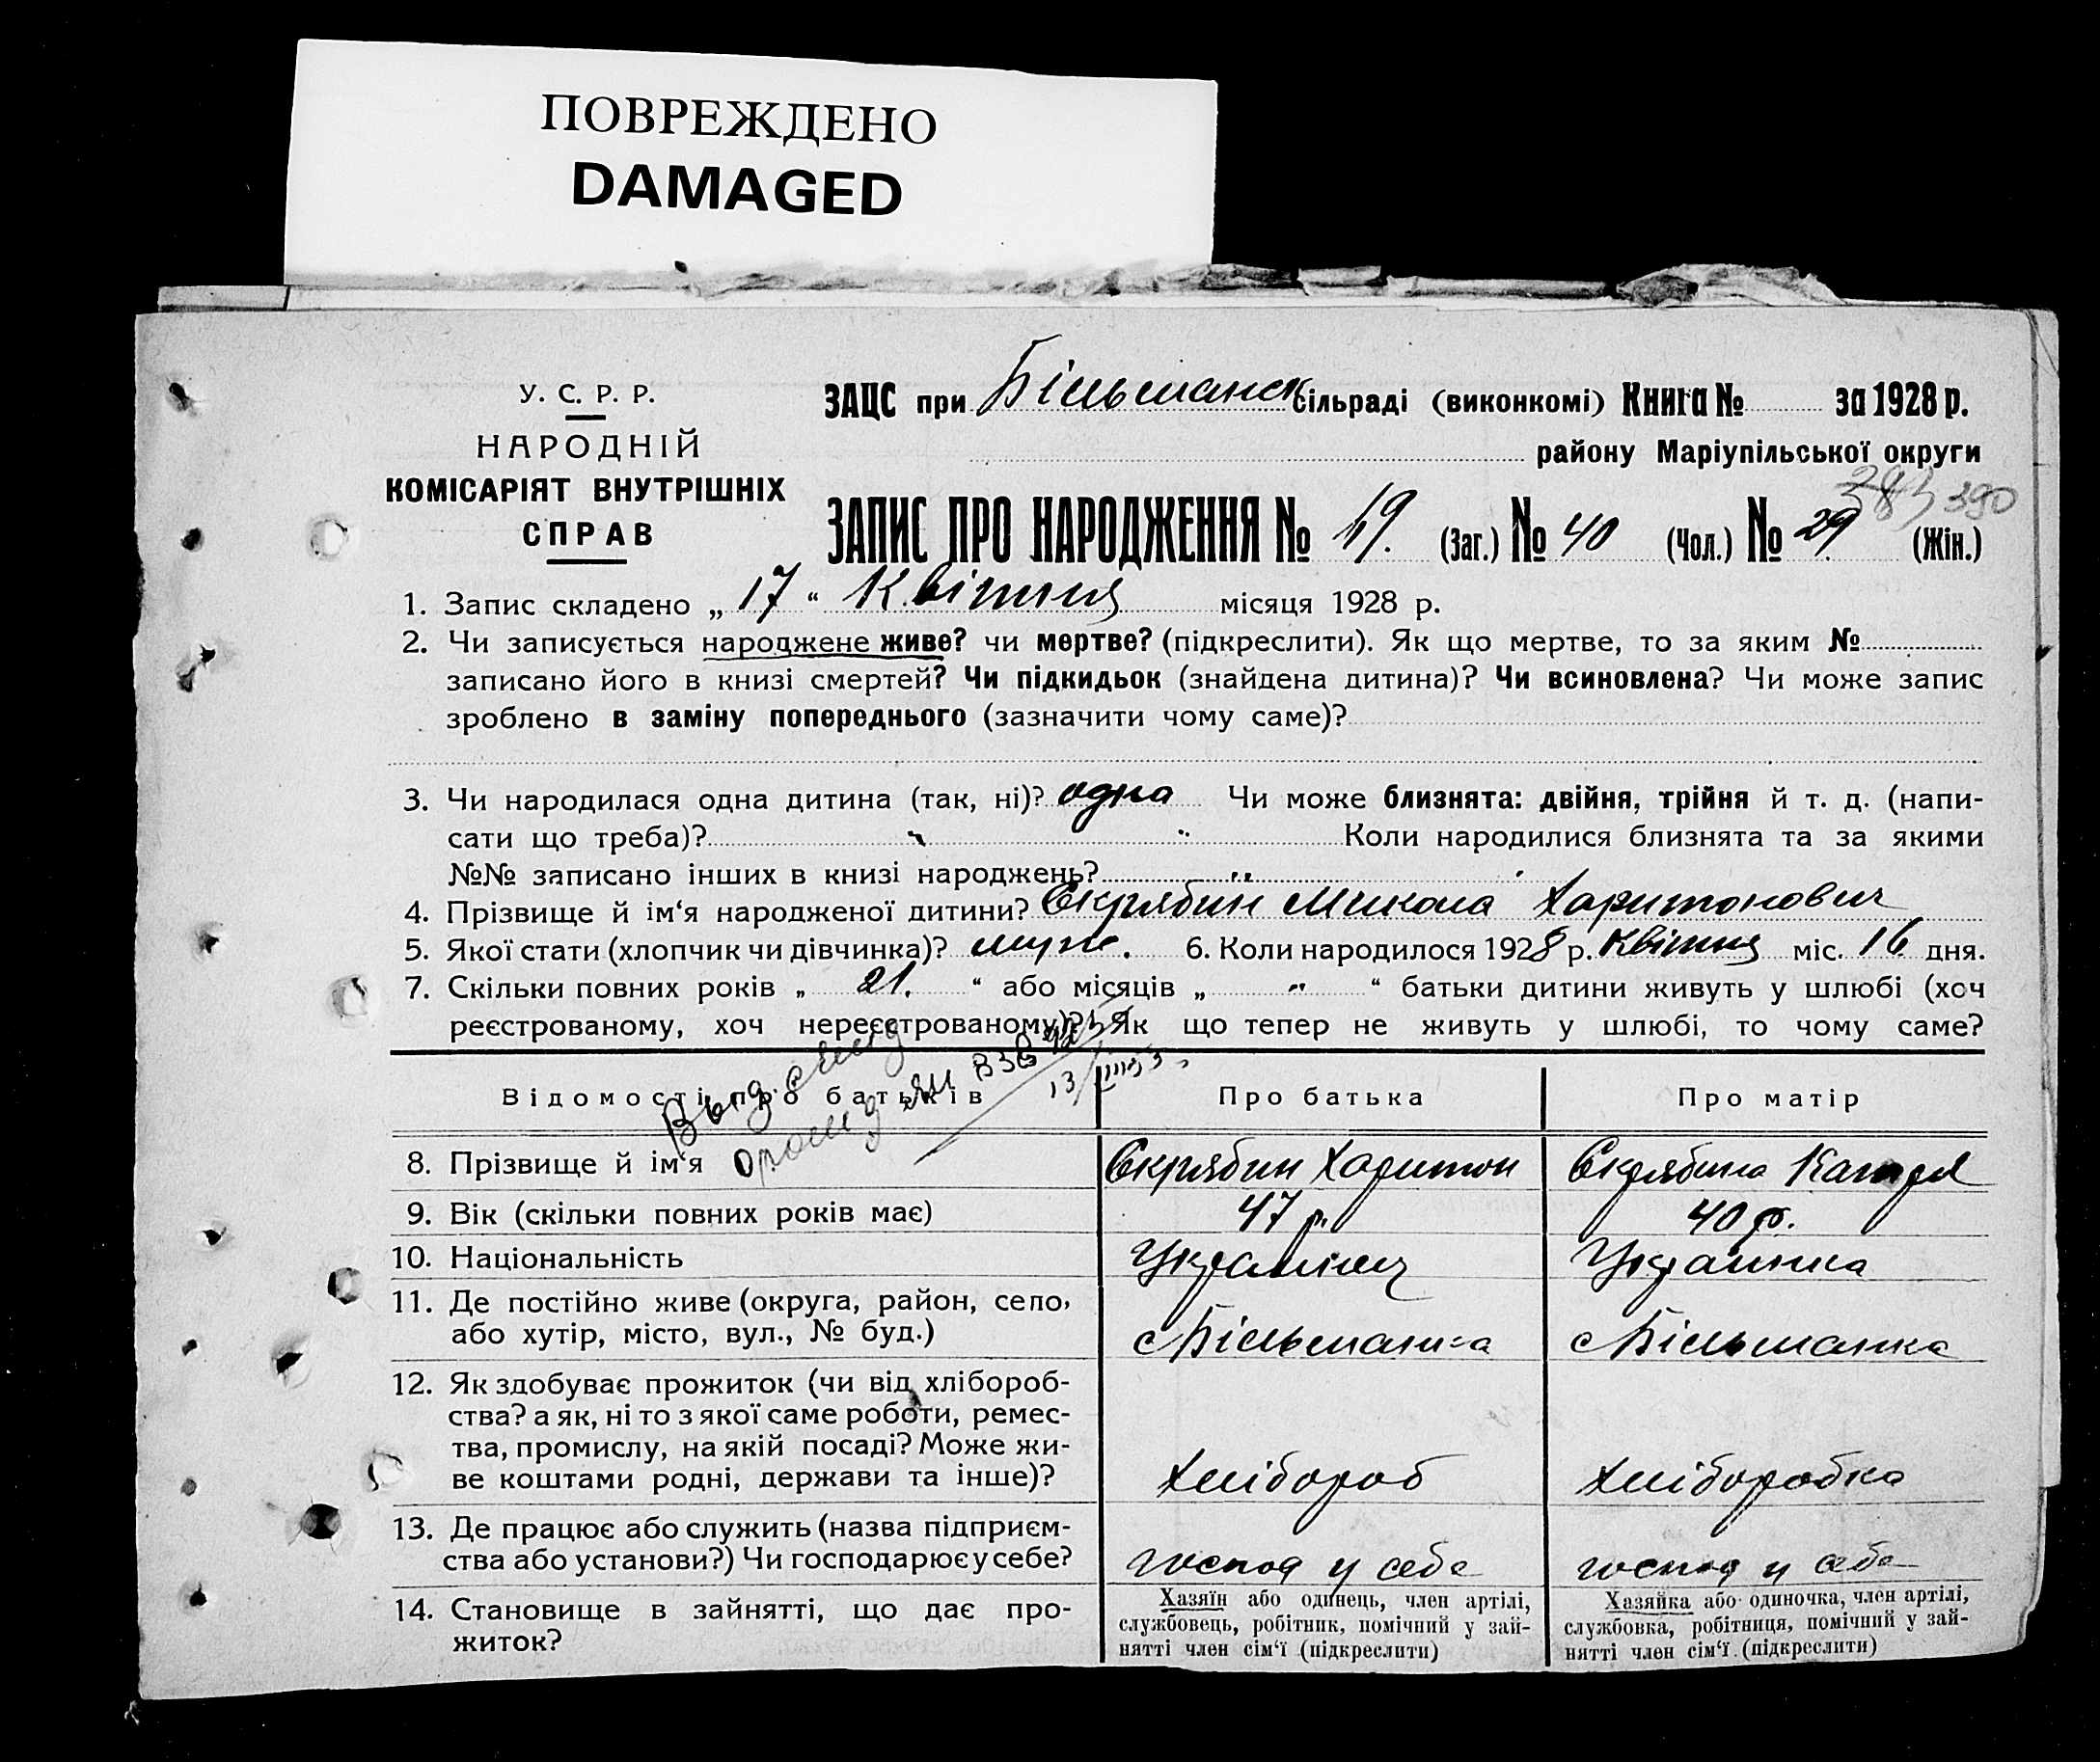 ПОВРЕЖДЕНО
DAMAGED
У. С. Р. Р.
НАРОДНІЙ
КОМІСАРІЯТ ВНУТРІШНІХ
СПРАВ
ЗАЦС при Більманск сільраді (виконкомі) Книга № за 1928 р.
району Маріупільської округи
383 390
ЗАПИС ПРО НАРОДЖЕННЯ № (Заг.) № 40 (Чол.) № 29 (Жін.)
1. Запис складено „ 17 “ Квітня місяця 1928 р.
2. Чи записується народжене живе? чи мертве? (підкреслити). Як що мертве, то за яким №
записано його в книзі смертей? Чи підкидьок (знайдена дитина)? Чи всиновлена? Чи може запис
зроблено в заміну попереднього (зазначити чому саме)?
3. Чи народилася одна дитина (так, ні)? одна Чи може близнята: двійня, трійня й т. д. (напи-
сати що треба)? Коли народилися близнята та за якими
№№ записано інших в книзі народжень?
4. Прізвище й ім‘я народженої дитини? Скрябин Микола Харитонович
5. Якої стати (хлопчик чи дівчинка)? муж. 6. Коли народилося 1928 р. Квітня міс. 16 дня.
7. Скільки повних років „ 21. “ або місяців „ " “ батьки дитини живуть у шлюбі (хоч
реєстрованому, хоч нереєстрованому)? Як що тепер не живуть у шлюбі, то чому саме?
Відомості про батьків Про батька Про матір
8. Прізвище й ім‘я Скрябин Харитон Скрябина Катря
9. Вік (скільки повних років має) 47 р. 40 р.
10. Національність Українец Українка
11. Де постійно живе (округа, район, село,
або хутір, місто, вул., № буд.) с Більманка с Більманка
12. Як здобуває прожиток (чи від хлібороб-
ства? а як, ні то з якої саме роботи, ремес-
тва, промислу, на якій посаді? Може жи-
ве коштами родні, держави та інше)? Хлібороб Хліборобка
13. Де працює або служить (назва підприєм-
ства або установи?) Чи господарює у себе? господ у себе господ у себе
14. Становище в зайнятті, що дає про-
житок?
Хазяїн або одинець, член артілі,
службовець, робітник, помічний у зай-
нятті член сім‘ї (підкреслити)
Хазяйка або одиночка, член артілі,
службовка, робітниця, помічний у зай-
нятті член сім‘ї (підкреслити)